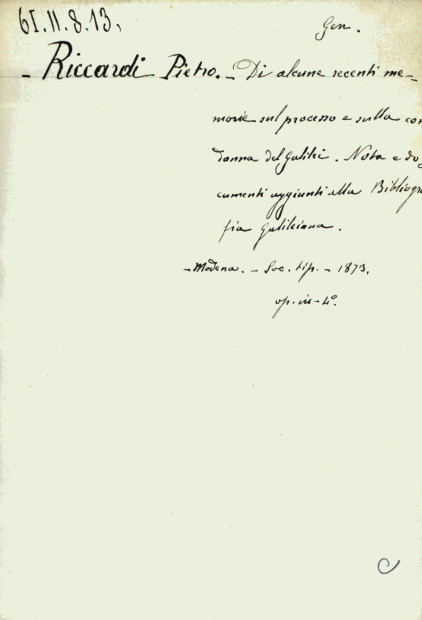 61.11.8.13,
Gen.
- Riccardi Pietro. - Di alcune recenti me-
morie sul processo e sulla con
danna del Galilei. Nota e do
cumenti aggiunti alla Bibliogra
fia Galileiana.
- Modena. - Soc. tip. - 1873.
op. in - 4°.